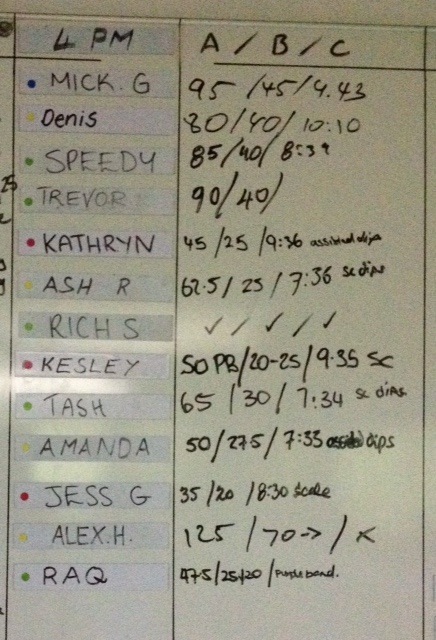 4 PM A / B / C
MICK. G 95 / 45 / 4.43
Denis 80 / 40 / 10:10
SPEEDY 85 / 40 / 8:39
TREVOR 90 / 40 /
KATHRYN 45 / 25 / 9:36 assisted dips
ASH R 62.5 / 25 / 7:36 sc dips
RICH S ✓ / ✓ / ✓
KESLEY 50 PB / 20-25 / 9:35 SC
TASH 65 / 30 / 7:34 sc dips
AMANDA 50 / 27.5 / 7:33 assisted dips
JESS G 35 / 20 / 8:30 scale
ALEX.H. 125 / 70 → / ×
RAQ 47.5 / 25/20 / Purple band.
25